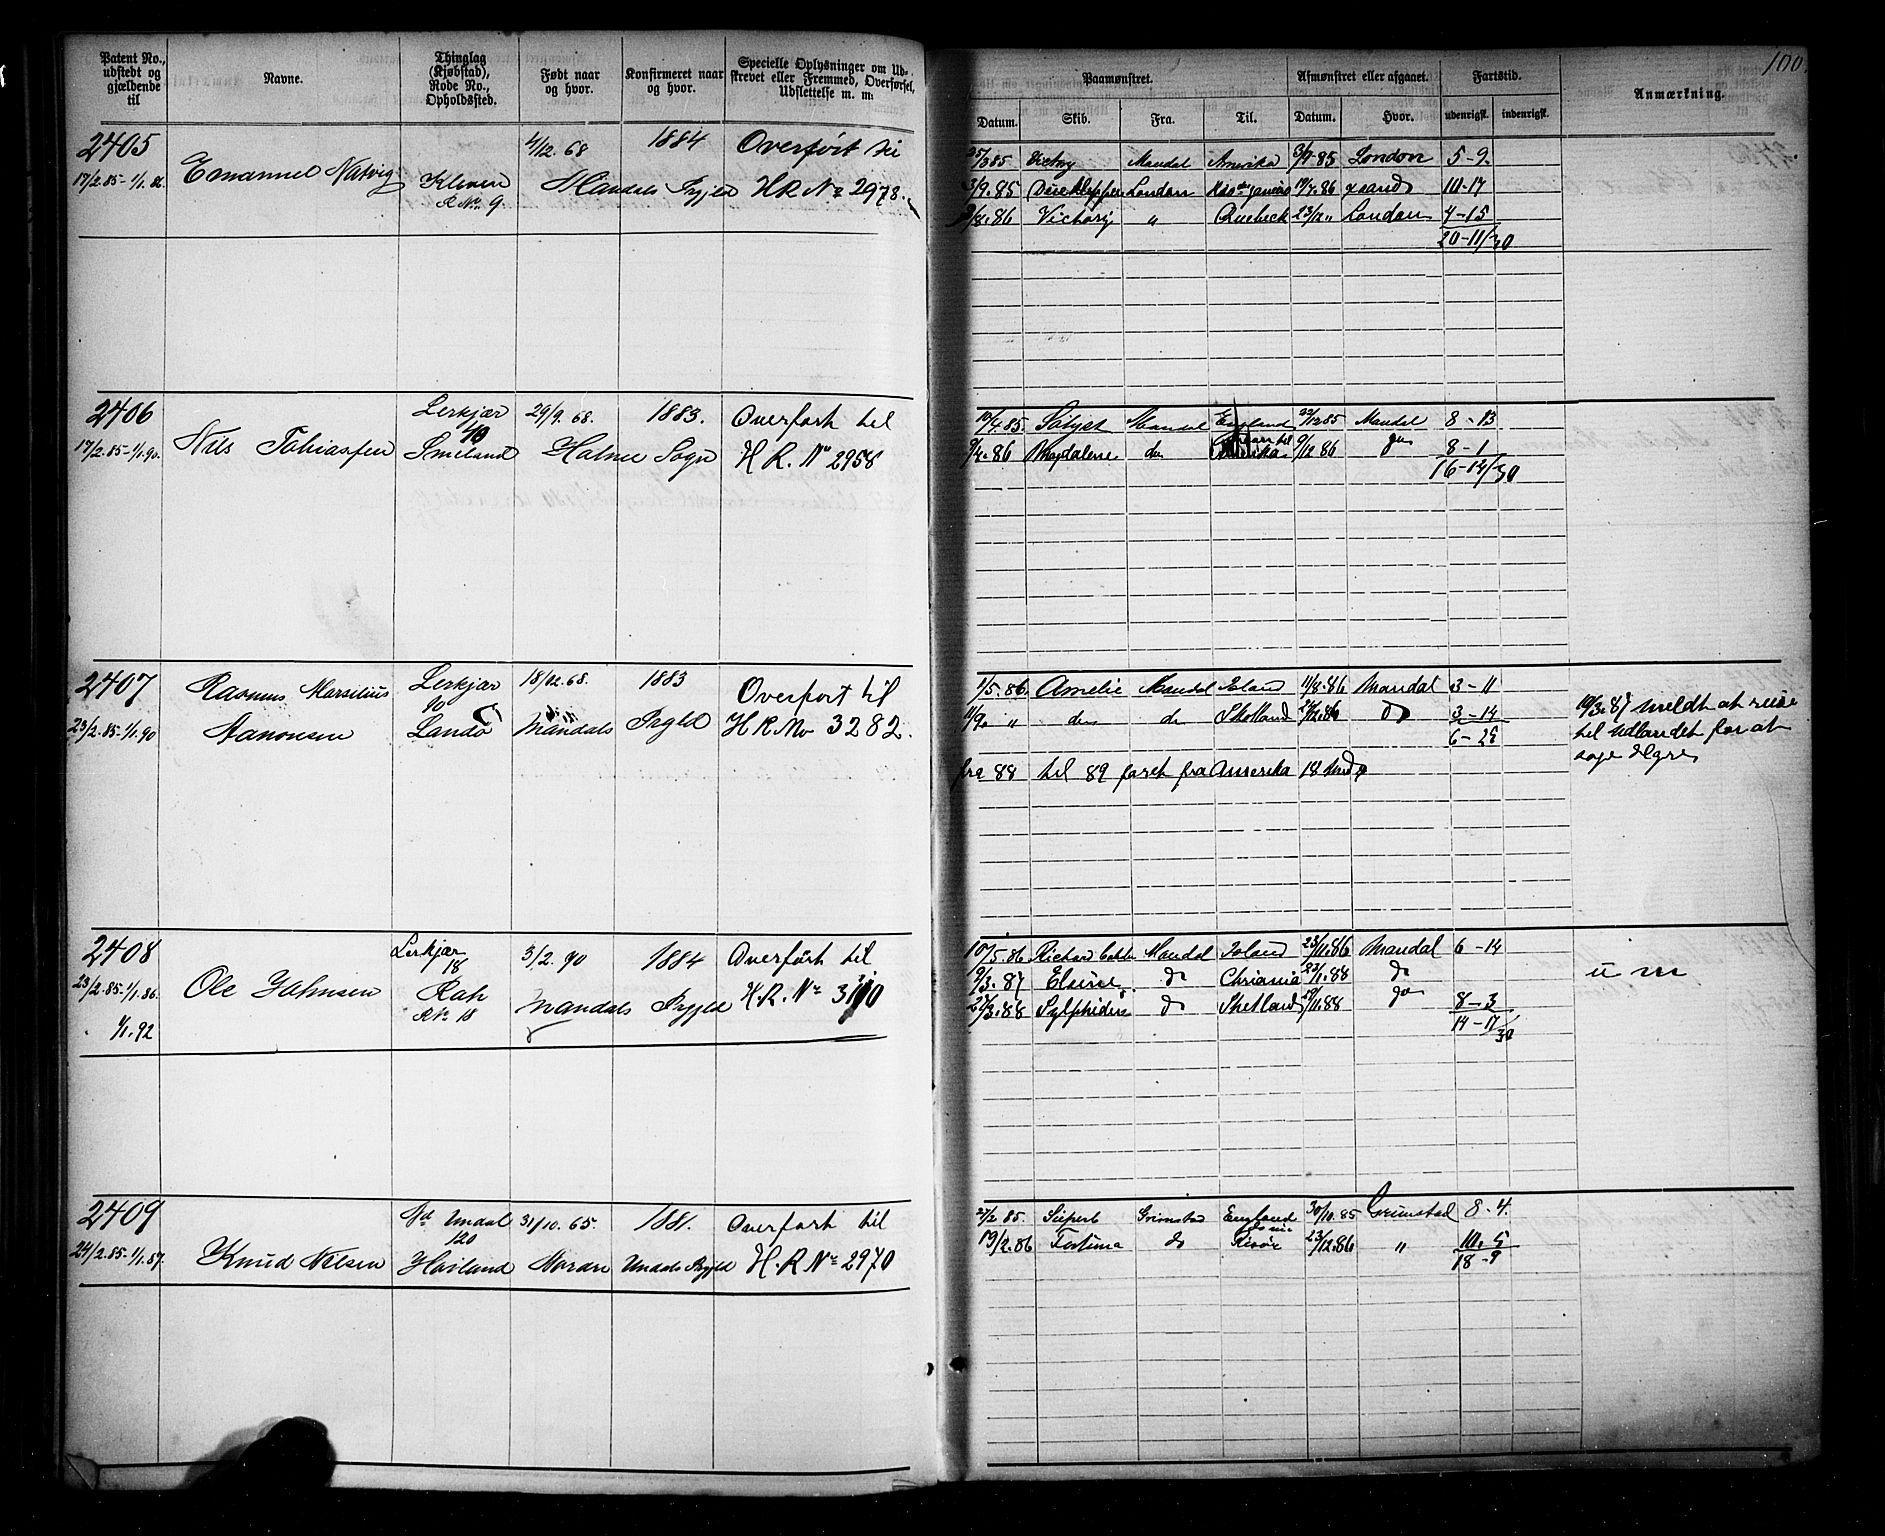 100.
Patent No., udstedt og gjældende til
Navne.
Thinglag (Kjøbstad), Rode No., Opholdssted.
Født naar og hvor.
Konfirmeret naar og hvor.
Specielle Oplysninger om Udskrevet eller Fremmed, Overførsel, Udslettelse m. m.
Paamønstret.
Afmønstret eller afgaaet.
Fartstid.
Anmærkning.
Datum.
Skib.
Fra.
Til.
Datum.
Hvor.
udenrigsk.
indenrigsk.
2405
4/12. 68
1884
Overført til
17/2.85-1/1.86
Emanuel Natvig
Kleven
R No. 9
Mandals Prgjld
H R No 2978.
Mandal Amerika
3/9.85 London 5-9.
3/9.85
London
19/7.86
Victory " Quebeck 23/12 " London 4-15
20-11/30
2406
Lerkjær
29/9. 68.
1883.
Overført til
17/2.85-1/1.90.
Nils Tobiassen
Smeland
Holme Sogn
H R. No 2958
10/4.85.
Mandal England
22/12 85 Mandal 8-13
9/4.86 Magdalene do
Amerika
9/12 86 do 8-1
16-14/30
2407
Rasmus Marselius
Lerkjær
18/12.68.
1883
Overført til
23/2.85-1/1.90
Aanonsen
90
Landø
Mandals Prgld
H R. No 3282.
1/5.86. Amelie Mandal
11/8.86 Mandal 3-11
11/9. " do do Skotland
do 3-14
6-25
fra 88 til 89 faret fra Amerika 18 Mdr
19/3.87 meldt at reise
til Udlandet for at
søge Hyre
2408
Lerkjær
18
3/2. 90
1884
Overført til
23/2.85-1/1.86.
1/1.92
Ole Jahnsen
R No 18
Mandals Prgjld
H. R. No 3110
10/5.86 Richard
Mandal
23/11.86 Mandal 6-14
9/3.87
do Chriania 22/1.88 do
27/3.88 Sylphiden do Shetland
do 8-3
14-17/30
u m
2409
Nd Undal
120
31/10. 65.
1881.
Overført til
24/2.85-1/1.87.
Knud Nilsen
Høiland
Nordre Undals Prgjld
H. R No 2970
27/2 85. Superb Grimstad England 30/10.85 Grimstad 8-4.
19/2.86 Fortuna do
Risør 23/12.86 " 10.5
18-9